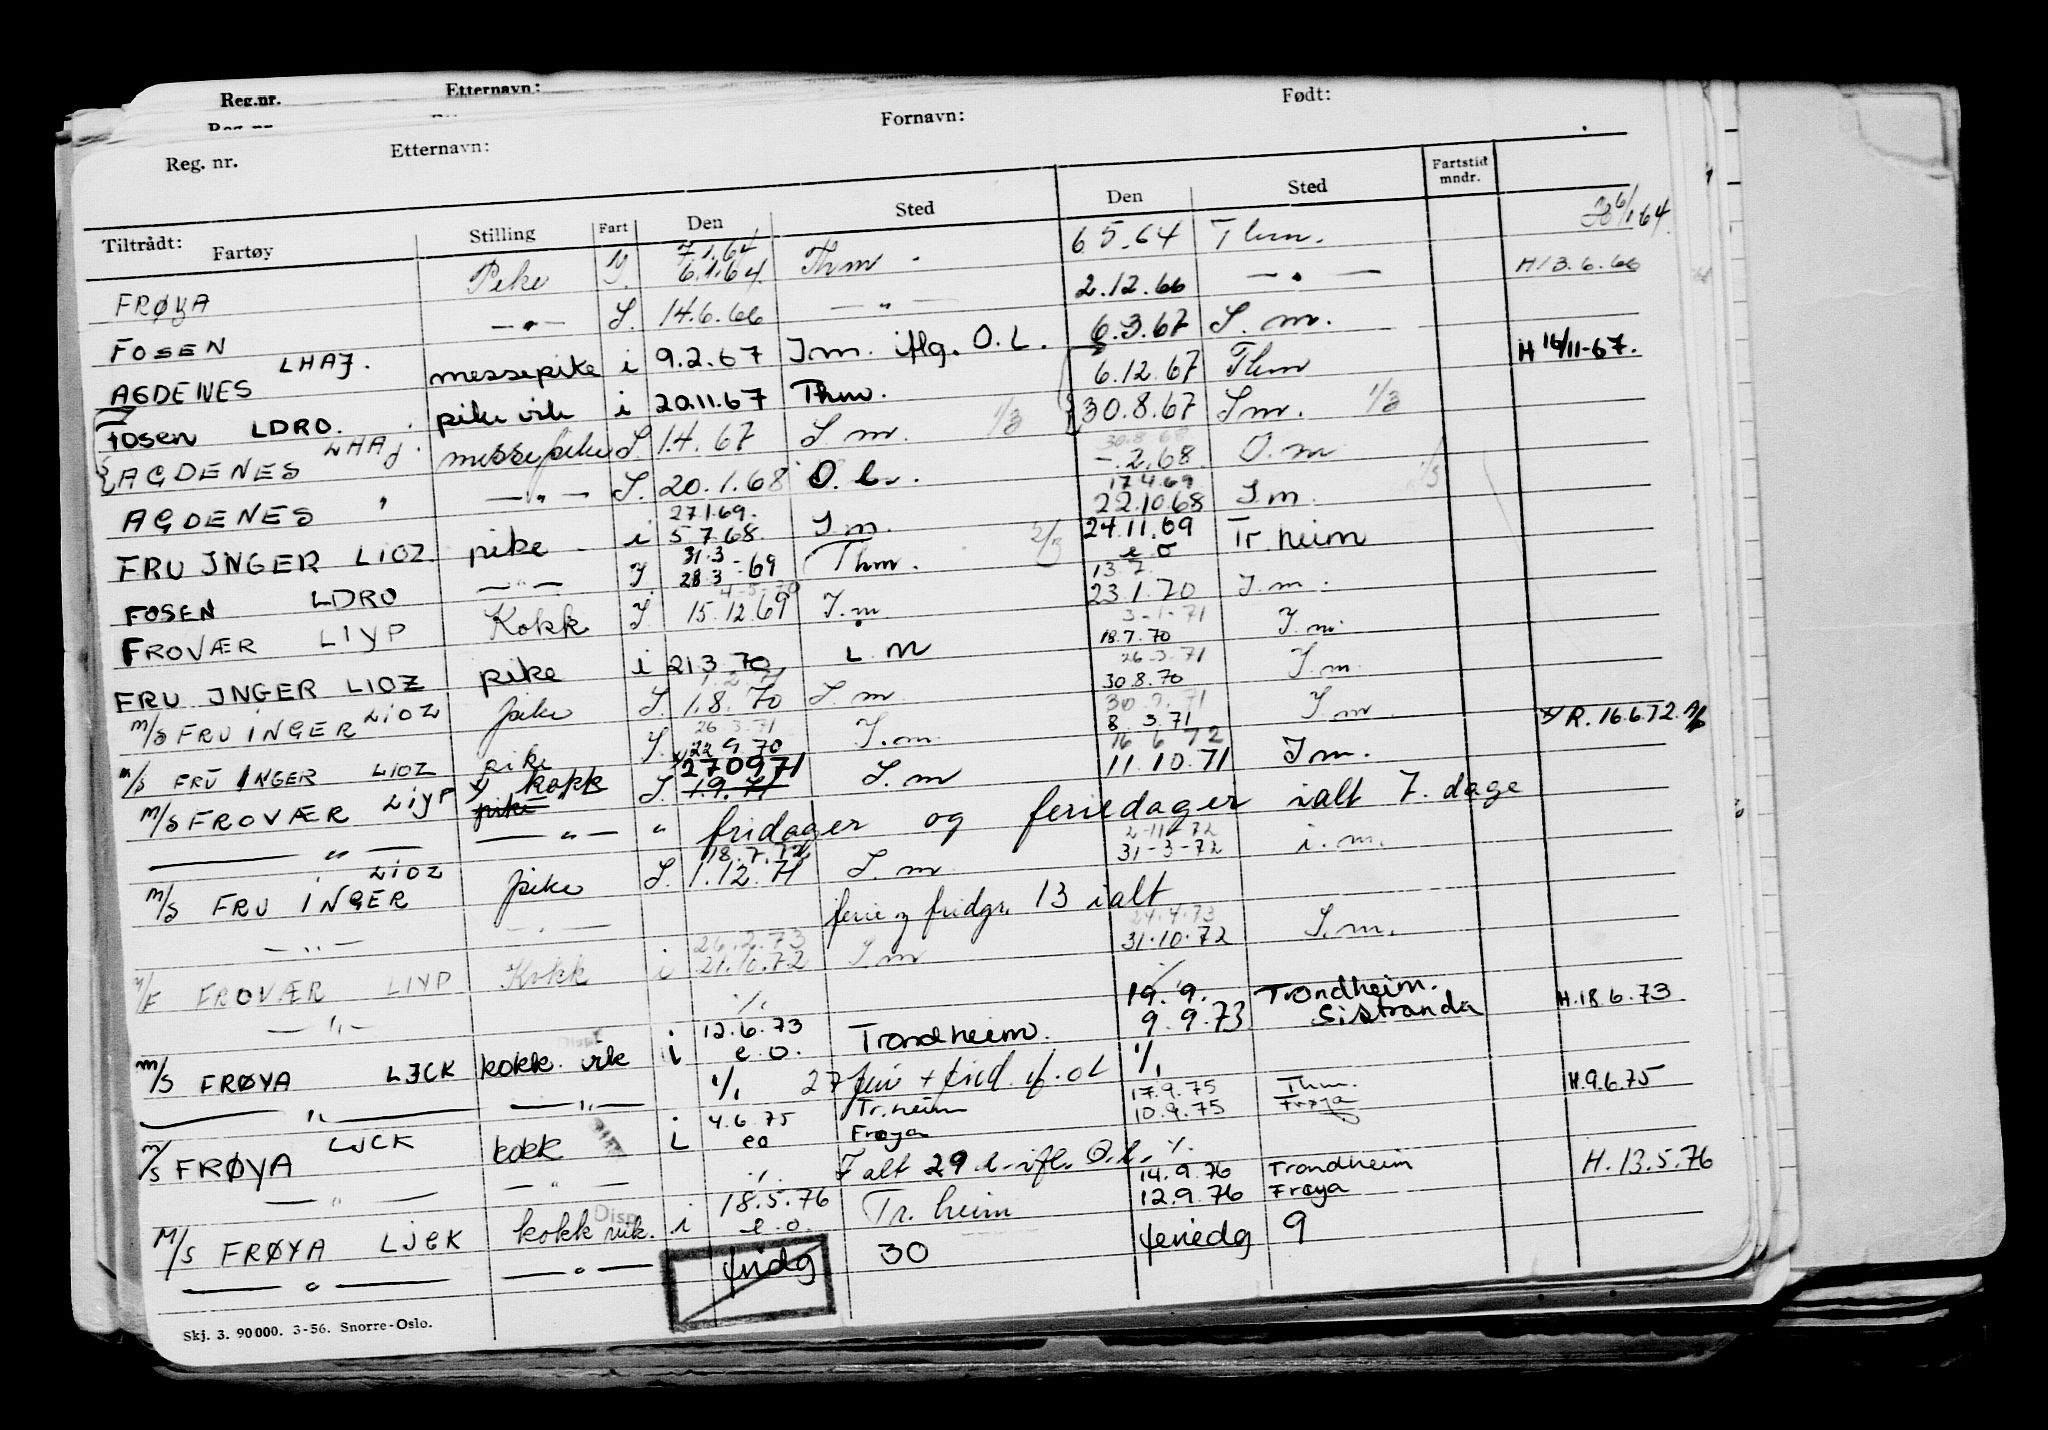 Reg.nr. Etternavn:
Reg. nr. Etternavn: Fornavn: Født:
Tiltrådt: Fartøy Stilling Fart Den Sted Den Sted Fartstid mndr.
7.1.64 6/1.64
FRØYA Peke 6.1.64. Thm. 6 5.64 Thm.
FOSEN — " — S. 14.6.66 — " — 2.12.66 — " — H13.6.66
AGDENES LHAJ. messepike i 9.2.67 I m. iflg. O.L. 6.3.67 S. m.
fosen LDRO. pike vik i 20.11.67 Thm. 6.12.67 Thm H 16/11-67.
AGDENES LHAJ. messepike S 1.4.67 S. m. 1/3 30.8.67 S m. 1/3
30.8.68
AGDENES " — " — S. 20.1.68 -.2.68. O.m
27.1.69. 17.4.69
FRU INGER LIOZ. pike i 5.7.68. I m. 22.10.68 I.m.
31.3 24.11.69
FOSEN LDRO — " — 28.3-69 Thm. e.o Tr.heim
4-5-70 13.7.
FROVÆR LIYP Kokk 15.12.69 I.m 23.1.70 I.m.
3-1-71
FRU INGER LIOZ pike i 21.3.70 i. m 18.7.70 I.m.
1.2.71 26-3.71
M/S FRU INGER LIOZ pike S. 1.8.70 S. m 30.8.70 I.m.
26.3.71 71
M/S FRU INGER LIOZ pike 22.9.70 I.m. 8.3.71 I.m x/ R. 16.6.72.
270971 16 6 72
M/S FROVÆR LIYP x/ kokk pike S. 1.9.71 S. m 11.10.71 I m.
— " — — " — " fridager og feriedager ialt 7. dage
18.7.72 2-11-72
M/S FRU INGER LIOZ pike S. 1.12.71 S. m 31-3-72 i.m.
— " — — " — ferie og fridgr. 13 ialt
26.2.73 24.4.73
FROVÆR LIYP Kokk i 21.10.72 I.m 31.10.72 I.m.
— " — ./. ./.
12.6.73 19.9. Trondheim.
M/S FRØYA LJCK kokk. vik i e.o. Trondheim. 9.9.73 Sistranda H.18.6.73
— " — — " — ./. 27 feri + frid. if. OL ./.
4.6.75 Tr.heim 17.9.75 Thm.
M/S FRØYA LJCK kokk i eo Frøya 10.9.75 Frøya H.9.6.75
— " — — " — ./. I alt 29 d. ifl. O.L. ./.
18.5.76 14.9.76 Trondheim
M/S FRØYA LJCK kokk vik. Disp i e.o. Tr.heim 12.9.76 Frøya H.13.5.76
— " — — " — fridg 30 feriedg 9
Skj. 3. 90000. 3-56. Snorre-Oslo.